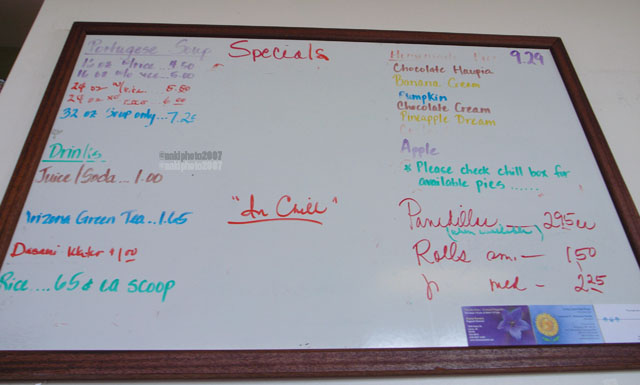 Portugese Soup
12 oz w/rice... 4.50
16 oz w/o rice... 5.00
24 oz w/rice 5.50
24 oz w/o rice 6.00
32 oz Soup only... 7.25
Specials
Drinks
Juice/Soda... 1.00
Arizona Green Tea... 1.65
Dasani Water $1.00
Rice ... 65¢ ea scoop
@nakiphoto2007
@nakiphoto2007
"In Chill"
Homemade Pies 9.29
Chocolate Haupia
Banana Cream
Pumpkin
Chocolate Cream
Pineapple Dream
Apple
* Please check chill box for
available pies ......
(when available)
Rolls am. — 1 50
med - 2 25